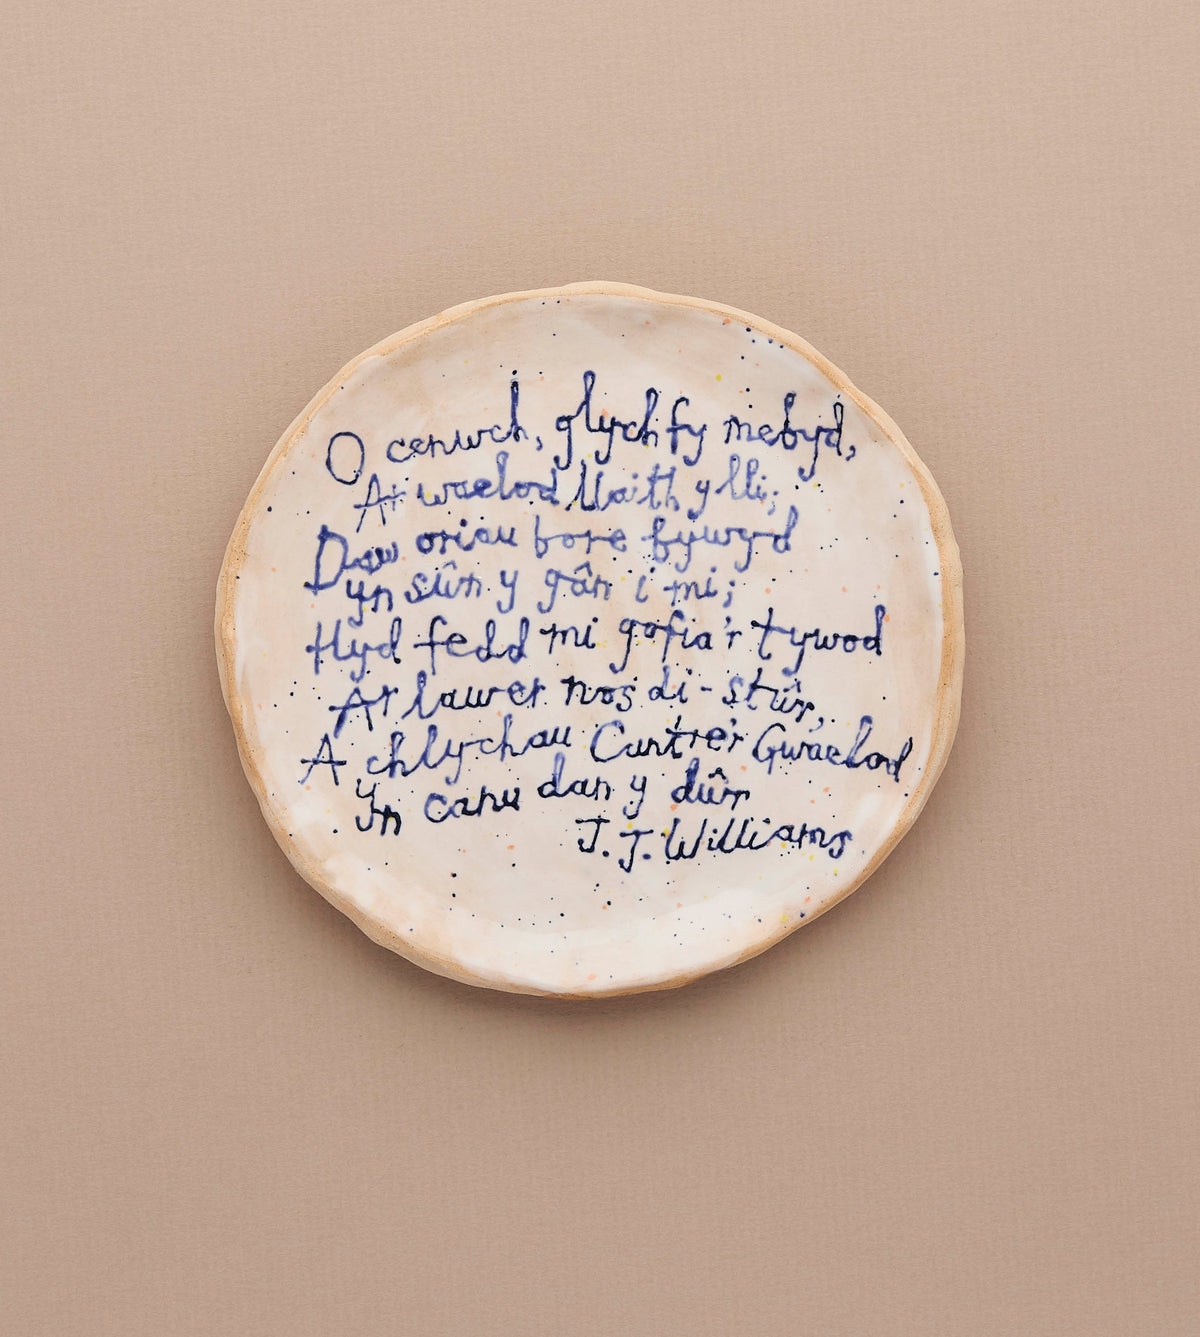 O cenwch, glychfy mebyd,
Ar waelod llaith y lli;
Daw oriau bore fywyd
Yn sŵn y gân i mi;
Hyd fedd mi gofia'r tywod
Ar lawer nos di-stŵr,
A chlychau Cantre'r Gwaelod
Yn canu dan y dŵr
J.J. Williams